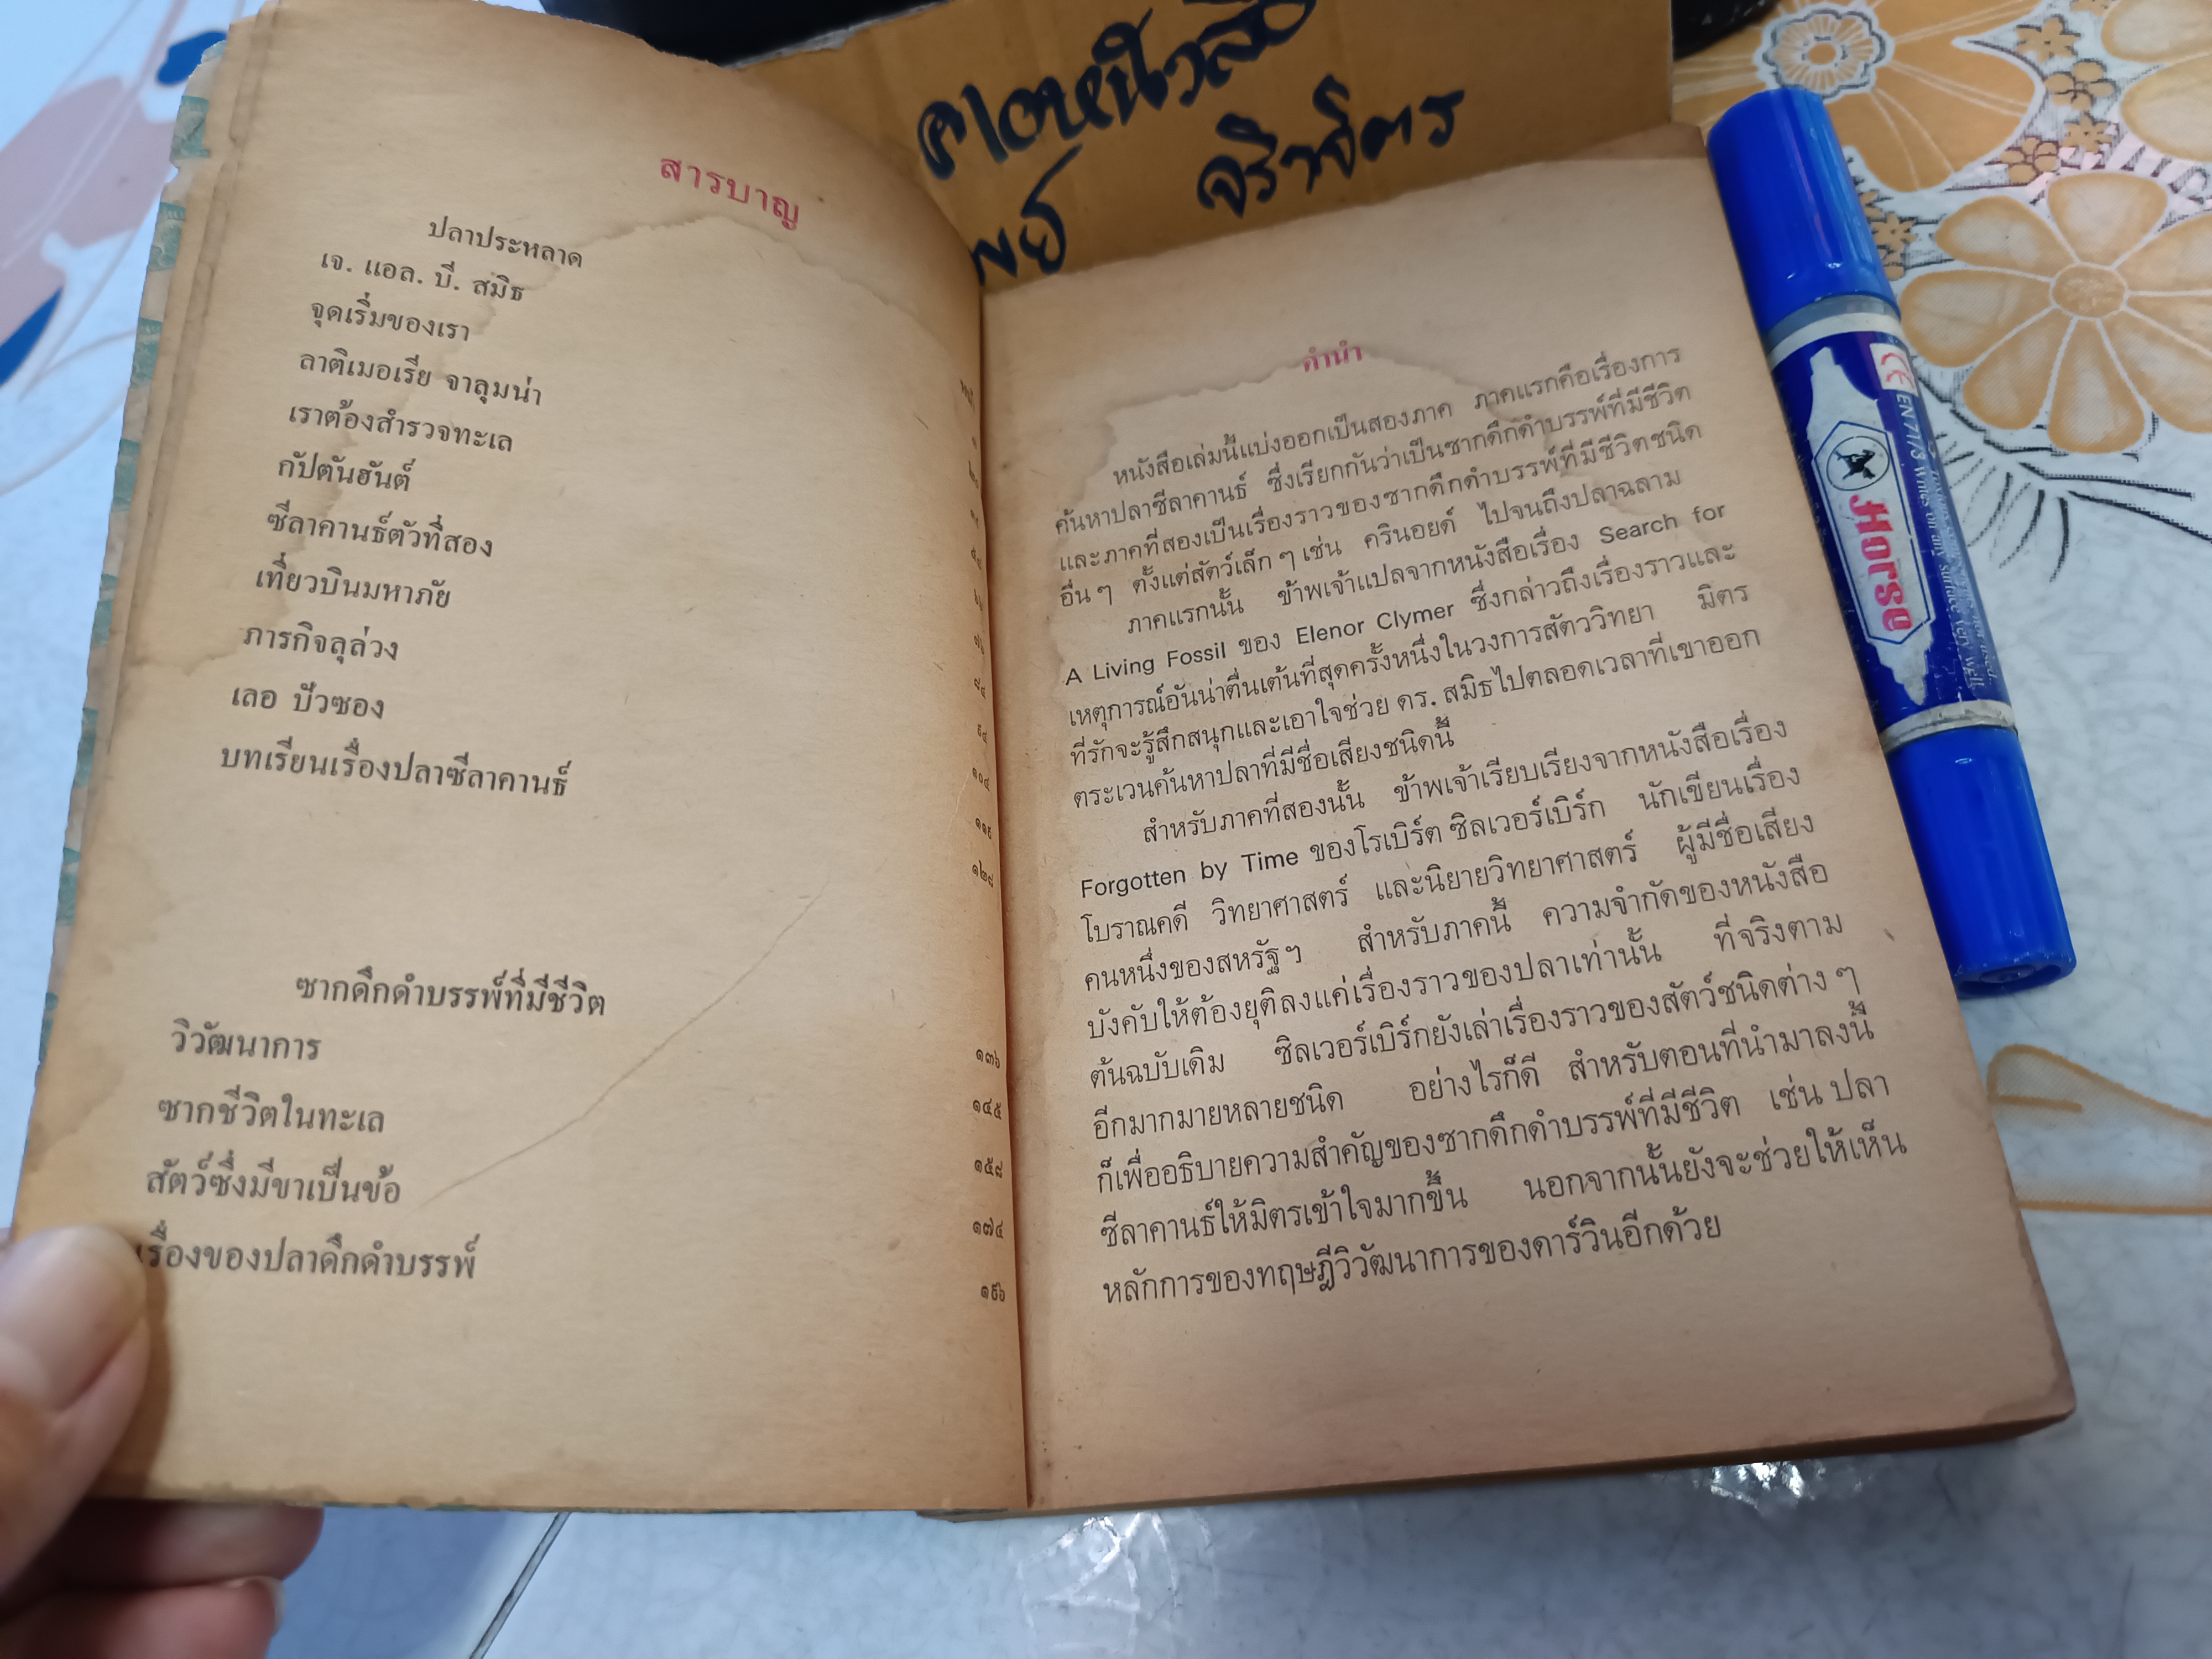 สารบาญ
ปลาประหลาด
เจ. แอล. บี. สมิธ
จุดเริ่มของเรา
ลาติเมอเรีย จาลุมน่า
เราต้องสำรวจทะเล
กัปตันฮันต์
ซีลาคานธ์ตัวที่สอง
เที่ยวบินมหาภัย
ภารกิจลุล่วง
เลอ ปัวซอง
บทเรียนเรื่องปลาซีลาคานธ์
หน้า
๑๐๔
๑๑๙
๑๒๘
ซากดึกดำบรรพ์ที่มีชีวิต
วิวัฒนาการ
ซากชีวิตในทะเล
สัตว์ซึ่งมีขาเป็นข้อ
เรื่องของปลาดึกดำบรรพ์
๑๓๖
๑๔๕
๑๕๘
๑๗๔
๑๘๖
คำนำ
หนังสือเล่มนี้แบ่งออกเป็นสองภาค ภาคแรกคือเรื่องการ
ค้นหาปลาซีลาคานธ์ ซึ่งเรียกกันว่าเป็นซากดึกดำบรรพ์ที่มีชีวิต
และภาคที่สองเป็นเรื่องราวของซากดึกดำบรรพ์ที่มีชีวิตชนิด
อื่น ๆ ตั้งแต่สัตว์เล็ก ๆ เช่น ครินอยด์ ไปจนถึงปลาฉลาม
ภาคแรกนั้น ข้าพเจ้าแปลจากหนังสือเรื่อง Search for
A Living Fossil ของ Elenor Clymer ซึ่งกล่าวถึงเรื่องราวและ
เหตุการณ์อันน่าตื่นเต้นที่สุดครั้งหนึ่งในวงการสัตววิทยา มิตร
ที่รักจะรู้สึกสนุกและเอาใจช่วย ดร. สมิธไปตลอดเวลาที่เขาออก
ตระเวนค้นหาปลาที่มีชื่อเสียงชนิดนี้
สำหรับภาคที่สองนั้น ข้าพเจ้าเรียบเรียงจากหนังสือเรื่อง
Forgotten by Time ของโรเบิร์ต ซิลเวอร์เบิร์ก นักเขียนเรื่อง
โบราณคดี วิทยาศาสตร์ และนิยายวิทยาศาสตร์ ผู้มีชื่อเสียง
คนหนึ่งของสหรัฐฯ สำหรับภาคนี้ ความจำกัดของหนังสือ
บังคับให้ต้องยุติลงแค่เรื่องราวของปลาเท่านั้น ที่จริงตาม
ต้นฉบับเดิม ซิลเวอร์เบิร์กยังเล่าเรื่องราวของสัตว์ชนิดต่าง ๆ
อีกมากมายหลายชนิด อย่างไรก็ดี สำหรับตอนที่นำมาลงนี้
ก็เพื่ออธิบายความสำคัญของซากดึกดำบรรพ์ที่มีชีวิต เช่น ปลา
ซีลาคานธ์ให้มิตรเข้าใจมากขึ้น นอกจากนั้นยังจะช่วยให้เห็น
หลักการของทฤษฎีวิวัฒนาการของดาร์วินอีกด้วย
จริงจิตร
Horse
CE
EN71/3